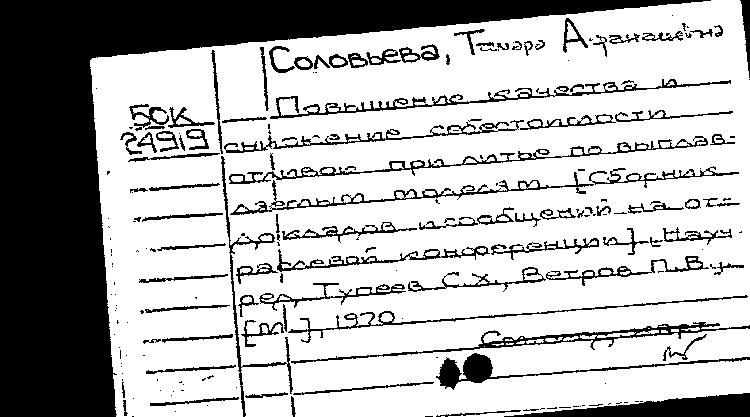 Соловьева, Тамара Афанасьевна
50К Повышение качества и
24919 снижение себестоимости
отливок при литье по выплав-
ляемым моделям. [Сборник
докладов и сообщений на от-
раслевой конференции]. Науч.
ред. Тупеев С.Х., Ветров П.В.,
[М], 1970